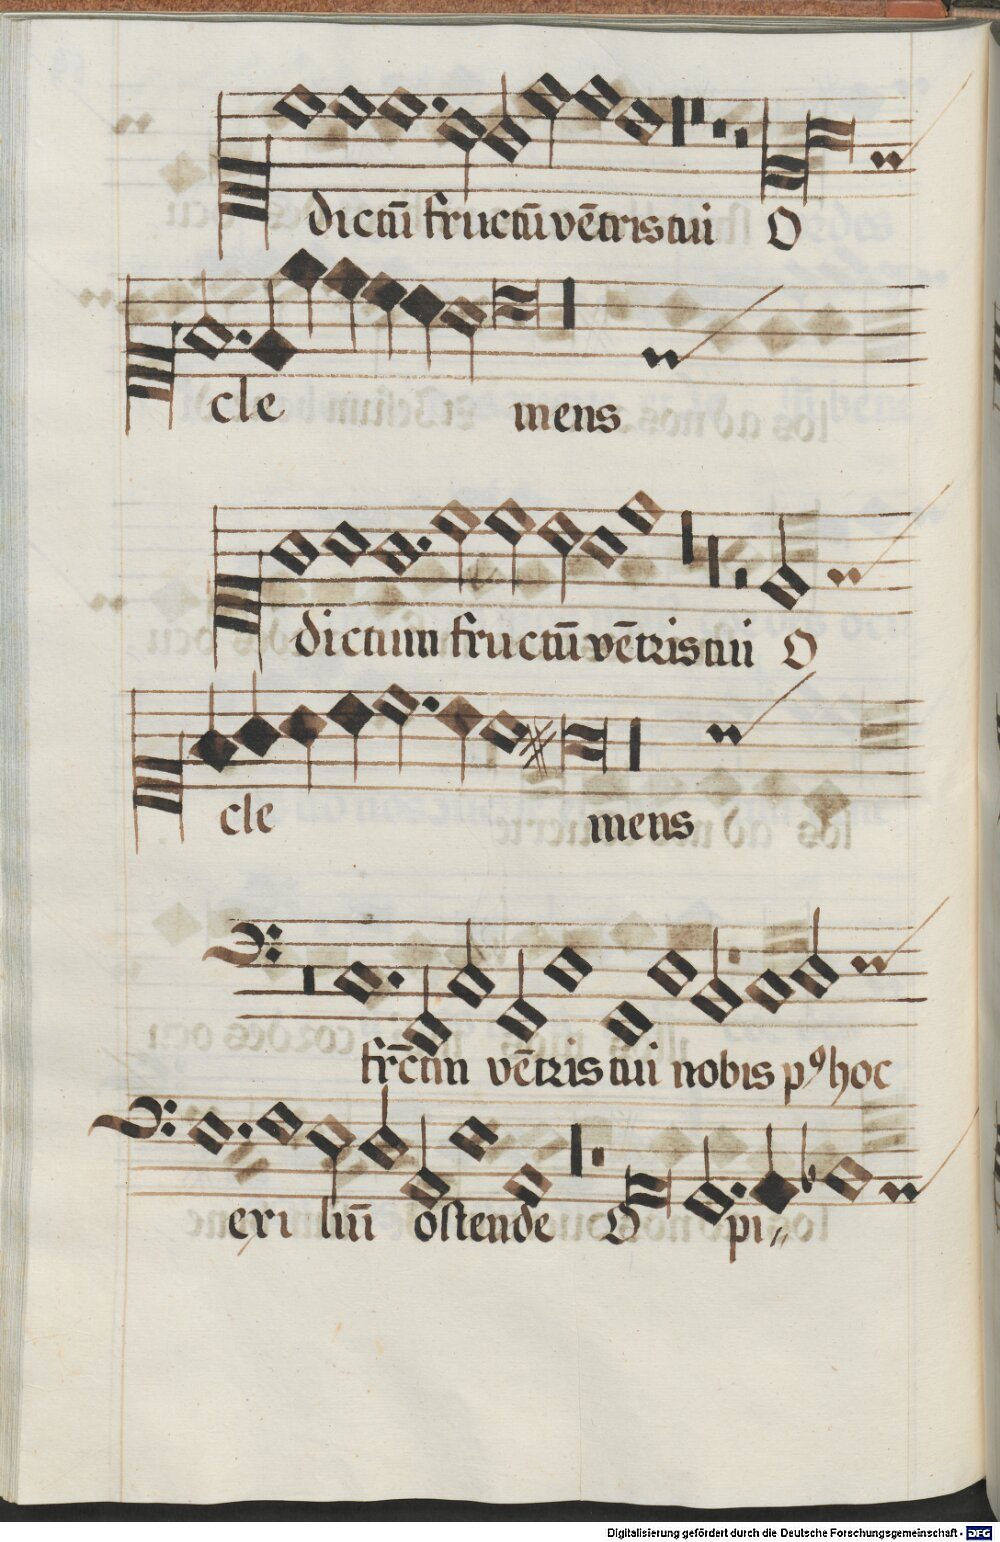 dictū fructū vētris tui O
cle mens
dictum fructū vētris tui O
cle mens
frc̄tm vētris tui nobis pꝰ hoc
exi liū ostende O pi
Digitalisierung gefördert durch die Deutsche Forschungsgemeinschaft - DFG